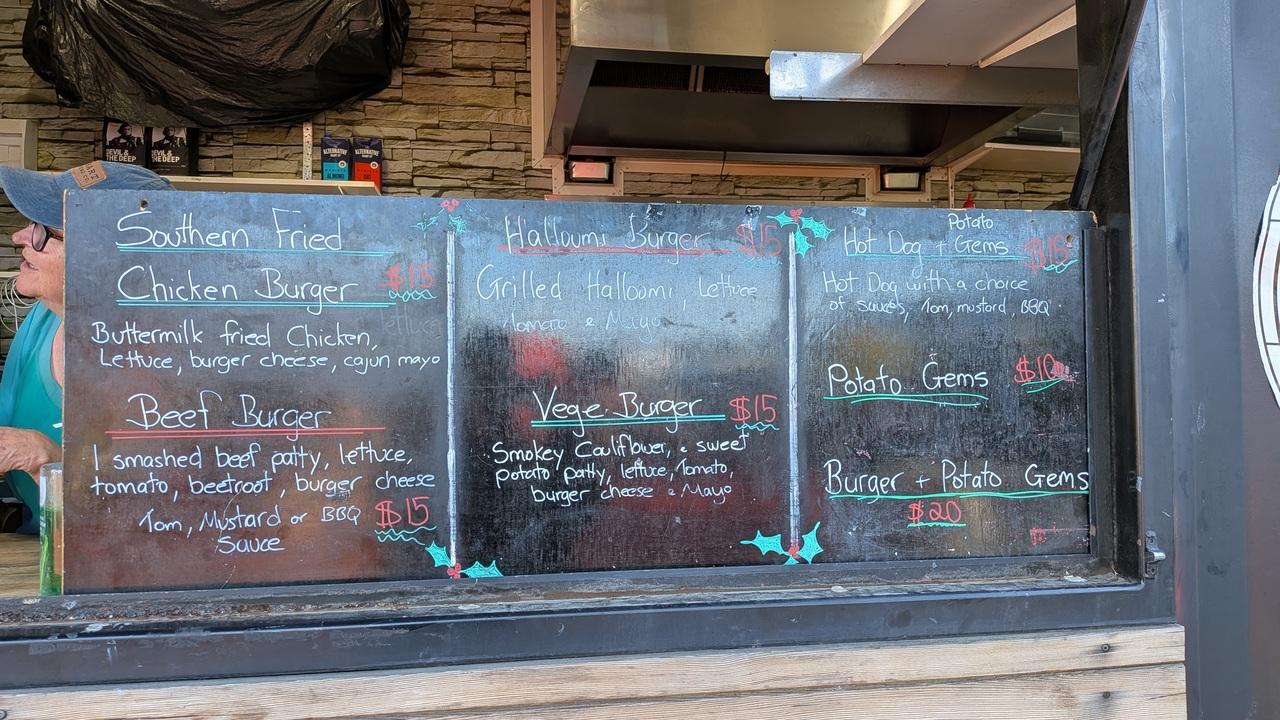 DEVIL &
THE DEEP
DEVIL &
THE DEEP
ALTERNATIVE
ALMOND
ALTERNATIVE
OAT
Southern Fried
Chicken Burger $15
Buttermilk fried Chicken,
Lettuce, burger cheese, cajun mayo
lettuce
Beef Burger
1 smashed beef patty, lettuce,
tomato, beetroot, burger cheese
Tom, Mustard or BBQ $15
Sauce
Halloumi Burger $15
Grilled Halloumi, Lettuce
Tomato & Mayo
Vege Burger $15
Smokey Cauliflower, & sweet
potato patty, lettuce, Tomato,
burger cheese & Mayo
Potato
Hot Dog + Gems $15
Hot Dog with a choice
of sauces, Tom, mustard, BBQ
Potato Gems $10
Burger + Potato Gems
$20